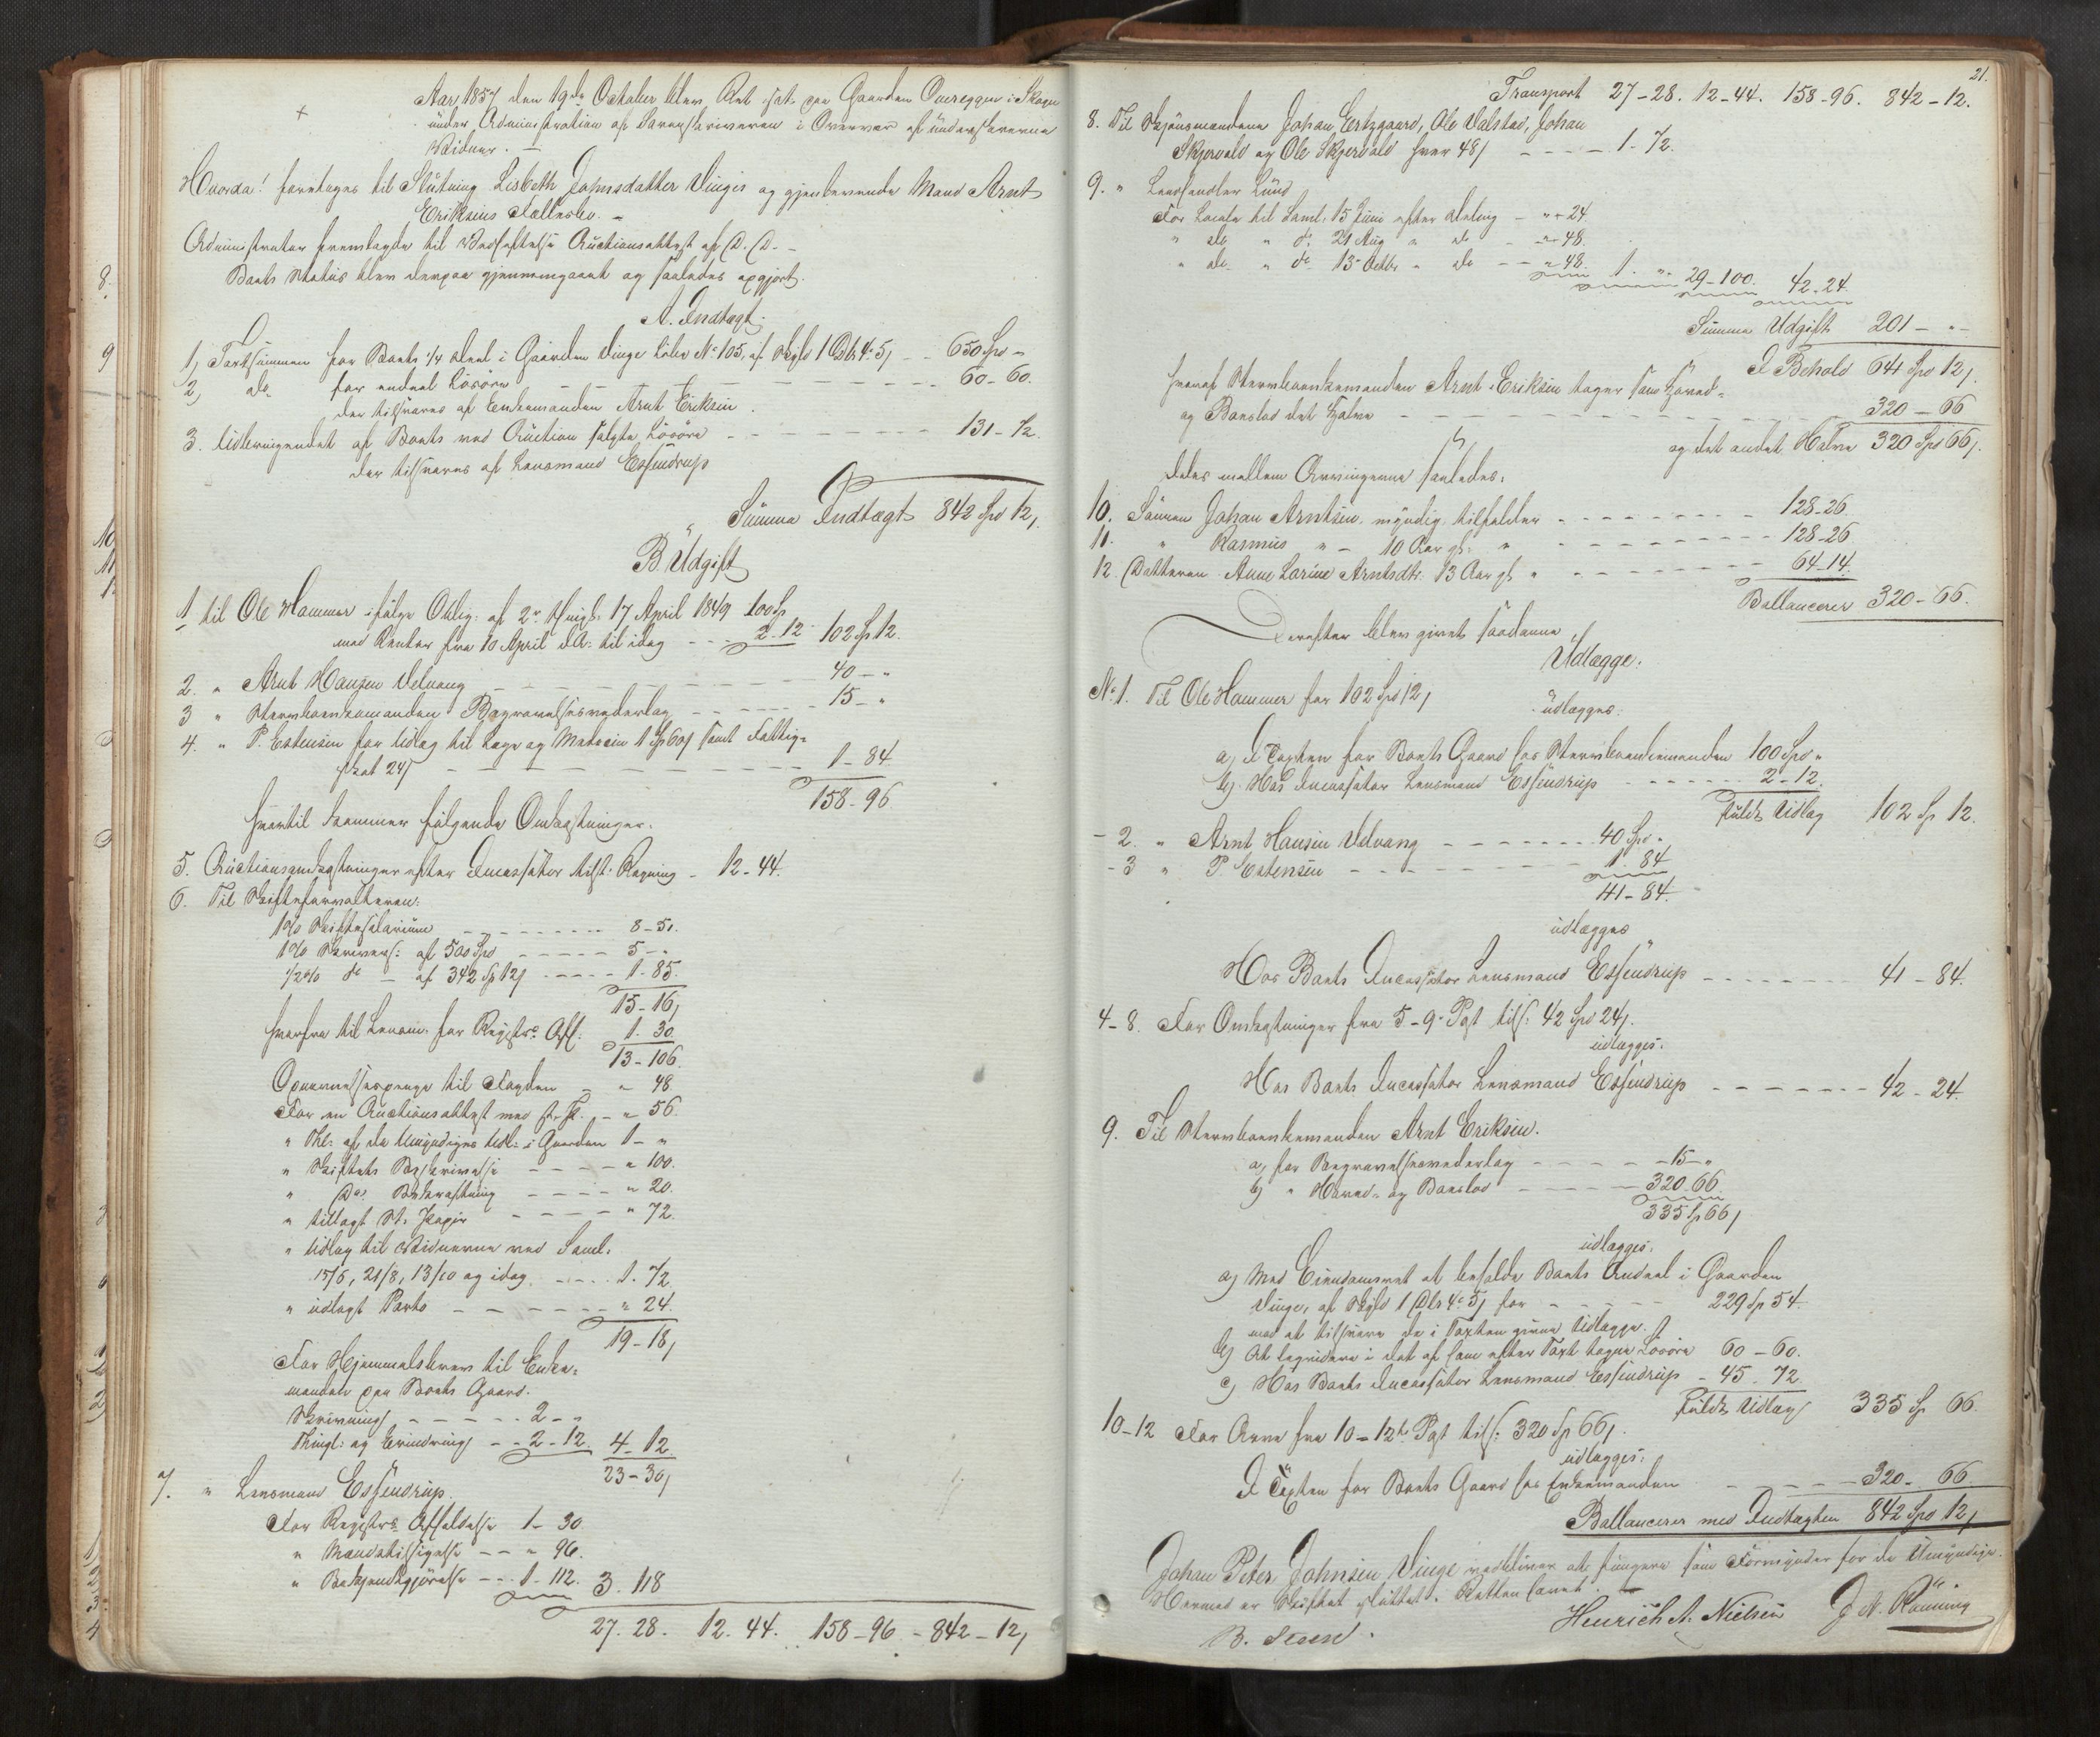 Aar 1857 den 19de October blev Ret sat paa Gaarden Overeggen i Skogn
under Administration af Sorenskriveren i Overvær af underskrevne
Vidner. —
Hvorda! foretages til Slutning Lisbeth Johnsdatter Vinges og gjenlevende Mand Arnt
Eriksens Fællesbo. —
Administrator fremlagde til Vedheftelse Auctionsattest af D. D. —
Boets Status blev derpaa gjennemgaaet og saaledes opgjort.
A. Indtægt.
1, Taxtsummen for Boets 1/4 Deel i Gaarden Vinge Løbe No 105, af Skyld 1 Dlr 4 5, - - 650 Spd -
2, do for endeel Løsøre - - - 60-60.
der tilsvares af Enkemanden Arnt Eriksen.
3. Udbringendet af Boets ved Auction solgte Løsøre - - - 131-72.
der tilsvares af Lensmand Essendrup
Summa Indtægt 842 Spd 12,
B. Udgift
1. til Ole Hammer ifølge Oblig: af 2 thingl: 17 April 1849 100 Sp
med Renter fra 10 April d.A. til idag - - - 2-12 102 Sp 12.
2. " Arnt Hansen Veluang - - - 40-"
3 " Stervboenkemanden Begravelsesvederlag - - - 15-"
4. " P. Estensen for Udlæg til Læge og Medicin 1 Sp 60, samt Fattig-
skat 24, - - - 1-84
158-96
Hvortil kommer følgende Omkostninger.
5. Auctionsomkostninger efter Incassator tilst. Regning - 12-44.
6. Til Skifteforvalteren:
1% Skiftesalarium - - - 8-51.
1% Skrivers: af 500 Spd - - - 5-"
1/2% do - af 342 Sp 12, - - - 1-85.
15-16,
herfra til Lensm. for Registr: Afh: 1-30
13-106.
Opvarselspenge til Fogden - " 48
For en Auctionsattest med - " 56
" af de Umyndiges Udl: i Gaarden 1-"
" Skiftets Beskrivelse - - - " 100.
" Do. Bekræftning - - - " 20.
" tillagt St. Papir - - - " 72.
" Udlæg til Vidnerne ved Saml:
15/6, 21/8, 13/10 og idag - - - 1-72
" udlagt Porto - - - " 24.
19-18,
For Hjemmelsbrev til Enke-
manden paa Boets Gaard.
Skrivning - - - 2-"
Thingl: og Erindring - - 2-12. 4-12
23-30,
7. " Lensmand Essendrup.
For Registrs Afholdelse 1-30
" Mændstilsigelse - - " 96.
" Bekjendtgjørelse - - 1-112. 3-118
27-28. 12-44. 158-96 - 842-12,
21.
Transport 27-28. 12-44. 158-96. 842-12.
8. Til Skjønsmændene Johan Ertzgaard, Ole Valstad, Johan
Skjervold og Ole Skjervold hver 48, - - - 1-72.
9. " Landhandler Lund
For Locale til Saml: 15 Juni efter Deling - " - 24
" do " do 21 Aug " do - " - 48.
" do " do 13 Octbr " do - - " - 48. 1-" 29-100. 42-24.
Summa Udgift 201-"-
I Behold 641 Spd 12,
hvoraf Stervboenkemanden Arnt Eriksen tager som Hoved-
og Boeslod det Halve - - - 320-66
og det andet Halve 320 Spd 66,.
deles mellem Arvingerne saaledes:
10. Sønnen Johan Arntsen, myndig tilfalder - - - 128-26
11. " Rasmus " - 10 Aar gl: " - - - 128-26
12. Datteren Anne Larine Arntsdtr. 13 Aar gl " - - - 64-14.
Ballancerer 320-66.
Derefter blev givet saadanne
Udlægge:
No 1. Til Ole Hammer for 102 Spd 12,
udlægges:
a, I Taxten for Boets Gaard hos Stervboenkemanden 100 Spd "
b, Hos Incassator Lensmand Essendrup - - - 2-12.
fuldt Udlæg 102 Sp 12.
- 2. " Arnt Hansen Veluang - - - 40 Spd "
- 3 " P. Estensen - - - 1-84
41-84.
udlægges
Hos Boets Incassator Lensmand Essendrup - - - 41-84.
4-8. For Omkostninger fra 5-9 Pgt tils: 42 Spd 24,.
udlægges:
Hos Boets Incassator Lensmand Essendrup - - - 42-24.
9. Til Stervboenkemanden Arnt Eriksen.
a, for Begravelsesvederlag - - - 15-"
b, " Hoved- og Boeslod - - - 320-66
335 Sp 66,
udlægges:
a, Med Eiendomsret at beholde Boets Andeel i Gaarden
Vinge, af Skyld 1 Dlr 4 5, for - - - 229 Sp 54.
mod at tilsvare de i Taxten givne Udlægge.
b, At beqvidere i det af ham efter Taxt tagne Løsøre 60-60.
c, Hos Boets Incassator Lensmand Essendrup - 45-72.
fuldt Udlæg 335 Sp 66.
10-12 For Arven fra 10-12te Pgt tils: 320 Sp 66,.
udlægges:
I Taxten for Boets Gaard hos Enkemanden - - - 320-66
Ballancerer med Indtægten 842 Spd 12,
Johan Peter Johnsen Vinge vedbliver at fungere som Formynder for de Umyndige.
Hermed er Skiftet sluttet. Retten hævet.
B. Steen. Henrich A. Nielsen J. N. Rønning